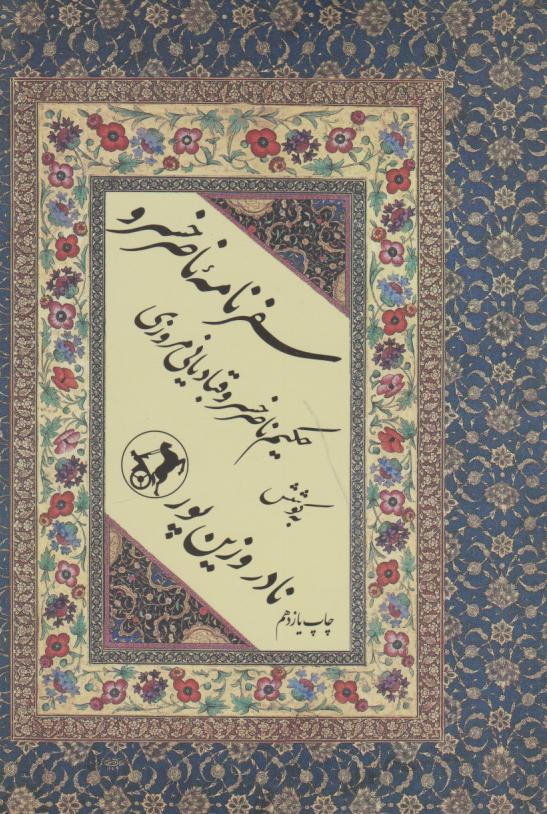 سفرنامهٔ ناصر خسرو
حکیم ناصر خسرو قبادیانی مروزی
به کوشش
نادر وزین پور
چاپ یازدهم